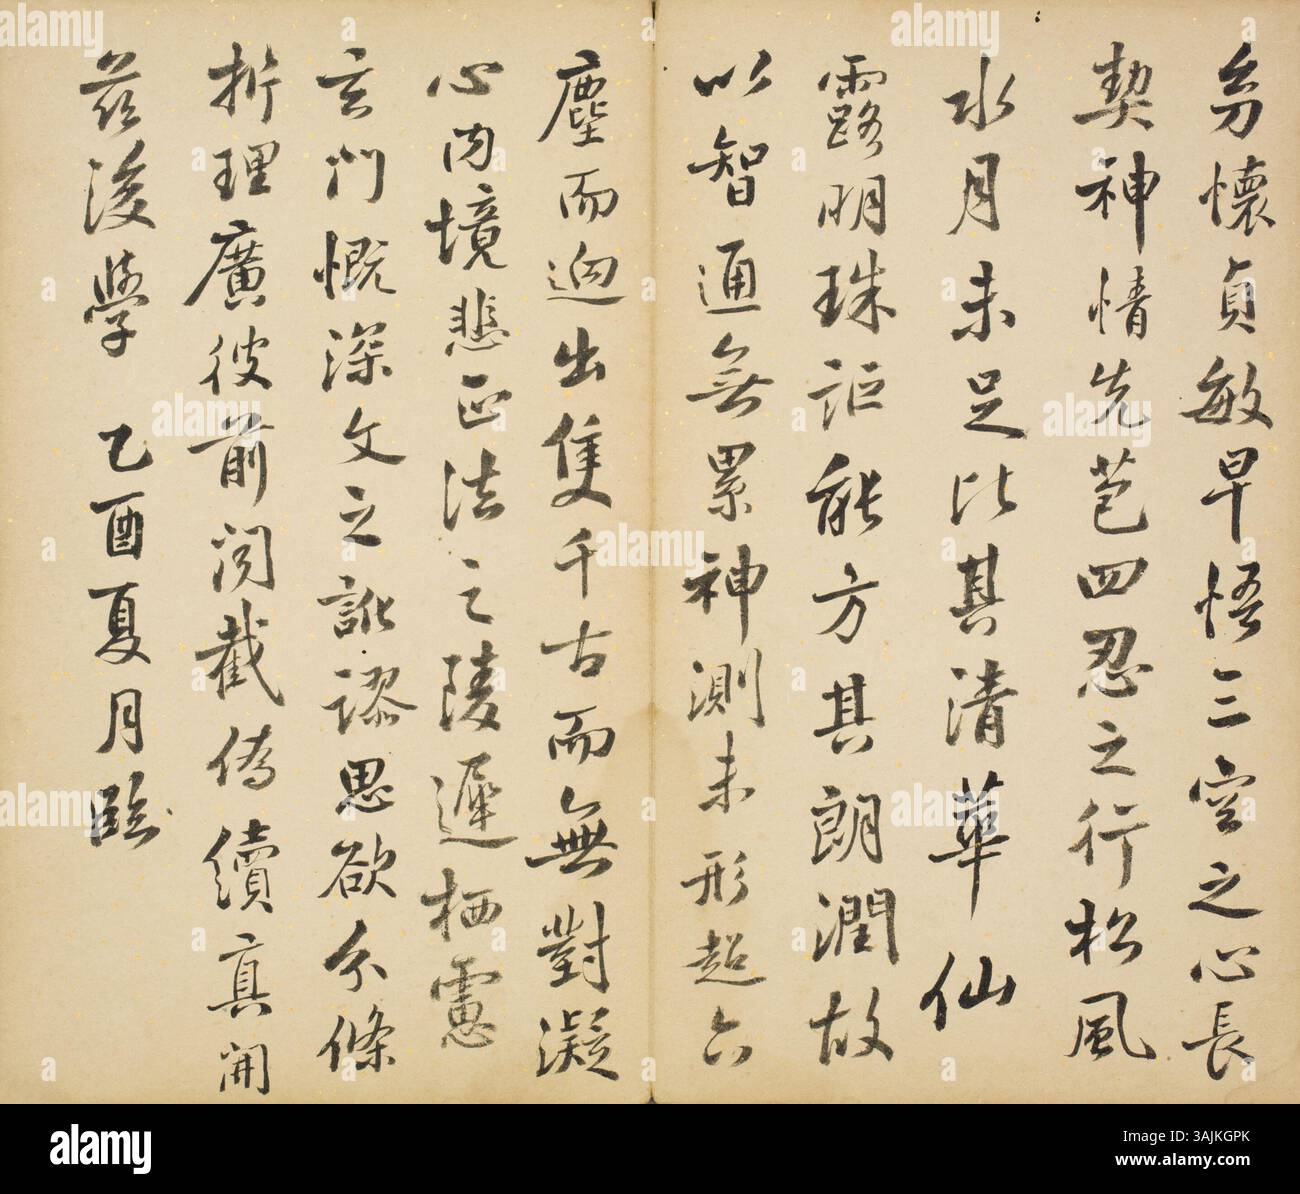 幼懷貞敏早悟三空之心長
契神情先苞四忍之行松風
水月未足比其清華仙
露明珠詎能方其朗潤故
以智通無累神測未形超六
塵而迥出隻千古而無對凝
心內境悲正法之陵遲栖慮
玄門慨深文之訛謬思欲分條
析理廣彼前聞截偽續真開
茲後學 乙酉夏月臨
alamy
Image ID: 3AJKGPK
www.alamy.com